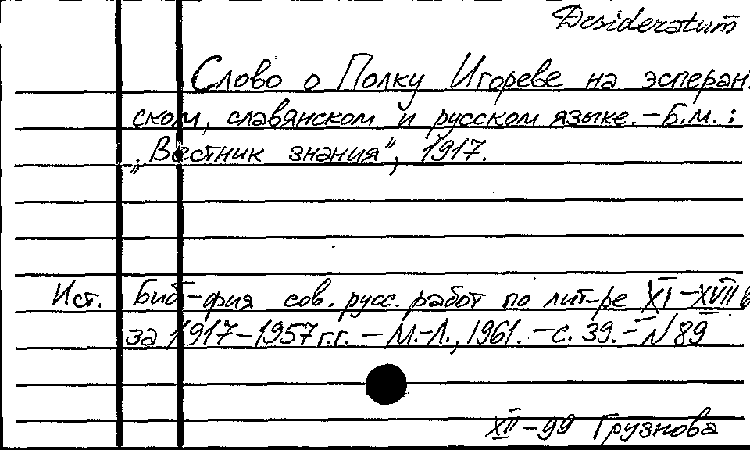 Desideratum
Слово о Полку Игореве на эсперан
ском, славянском и русском языке. – Б.м. :
„Вестник знания", 1917.
Ист. Биб-фия сов. русс. работ по лит-ре XI–XVII в
за 1917–1957 г.г. – М.-Л., 1961. – с. 39. – N 89
XII–99 Грузнова